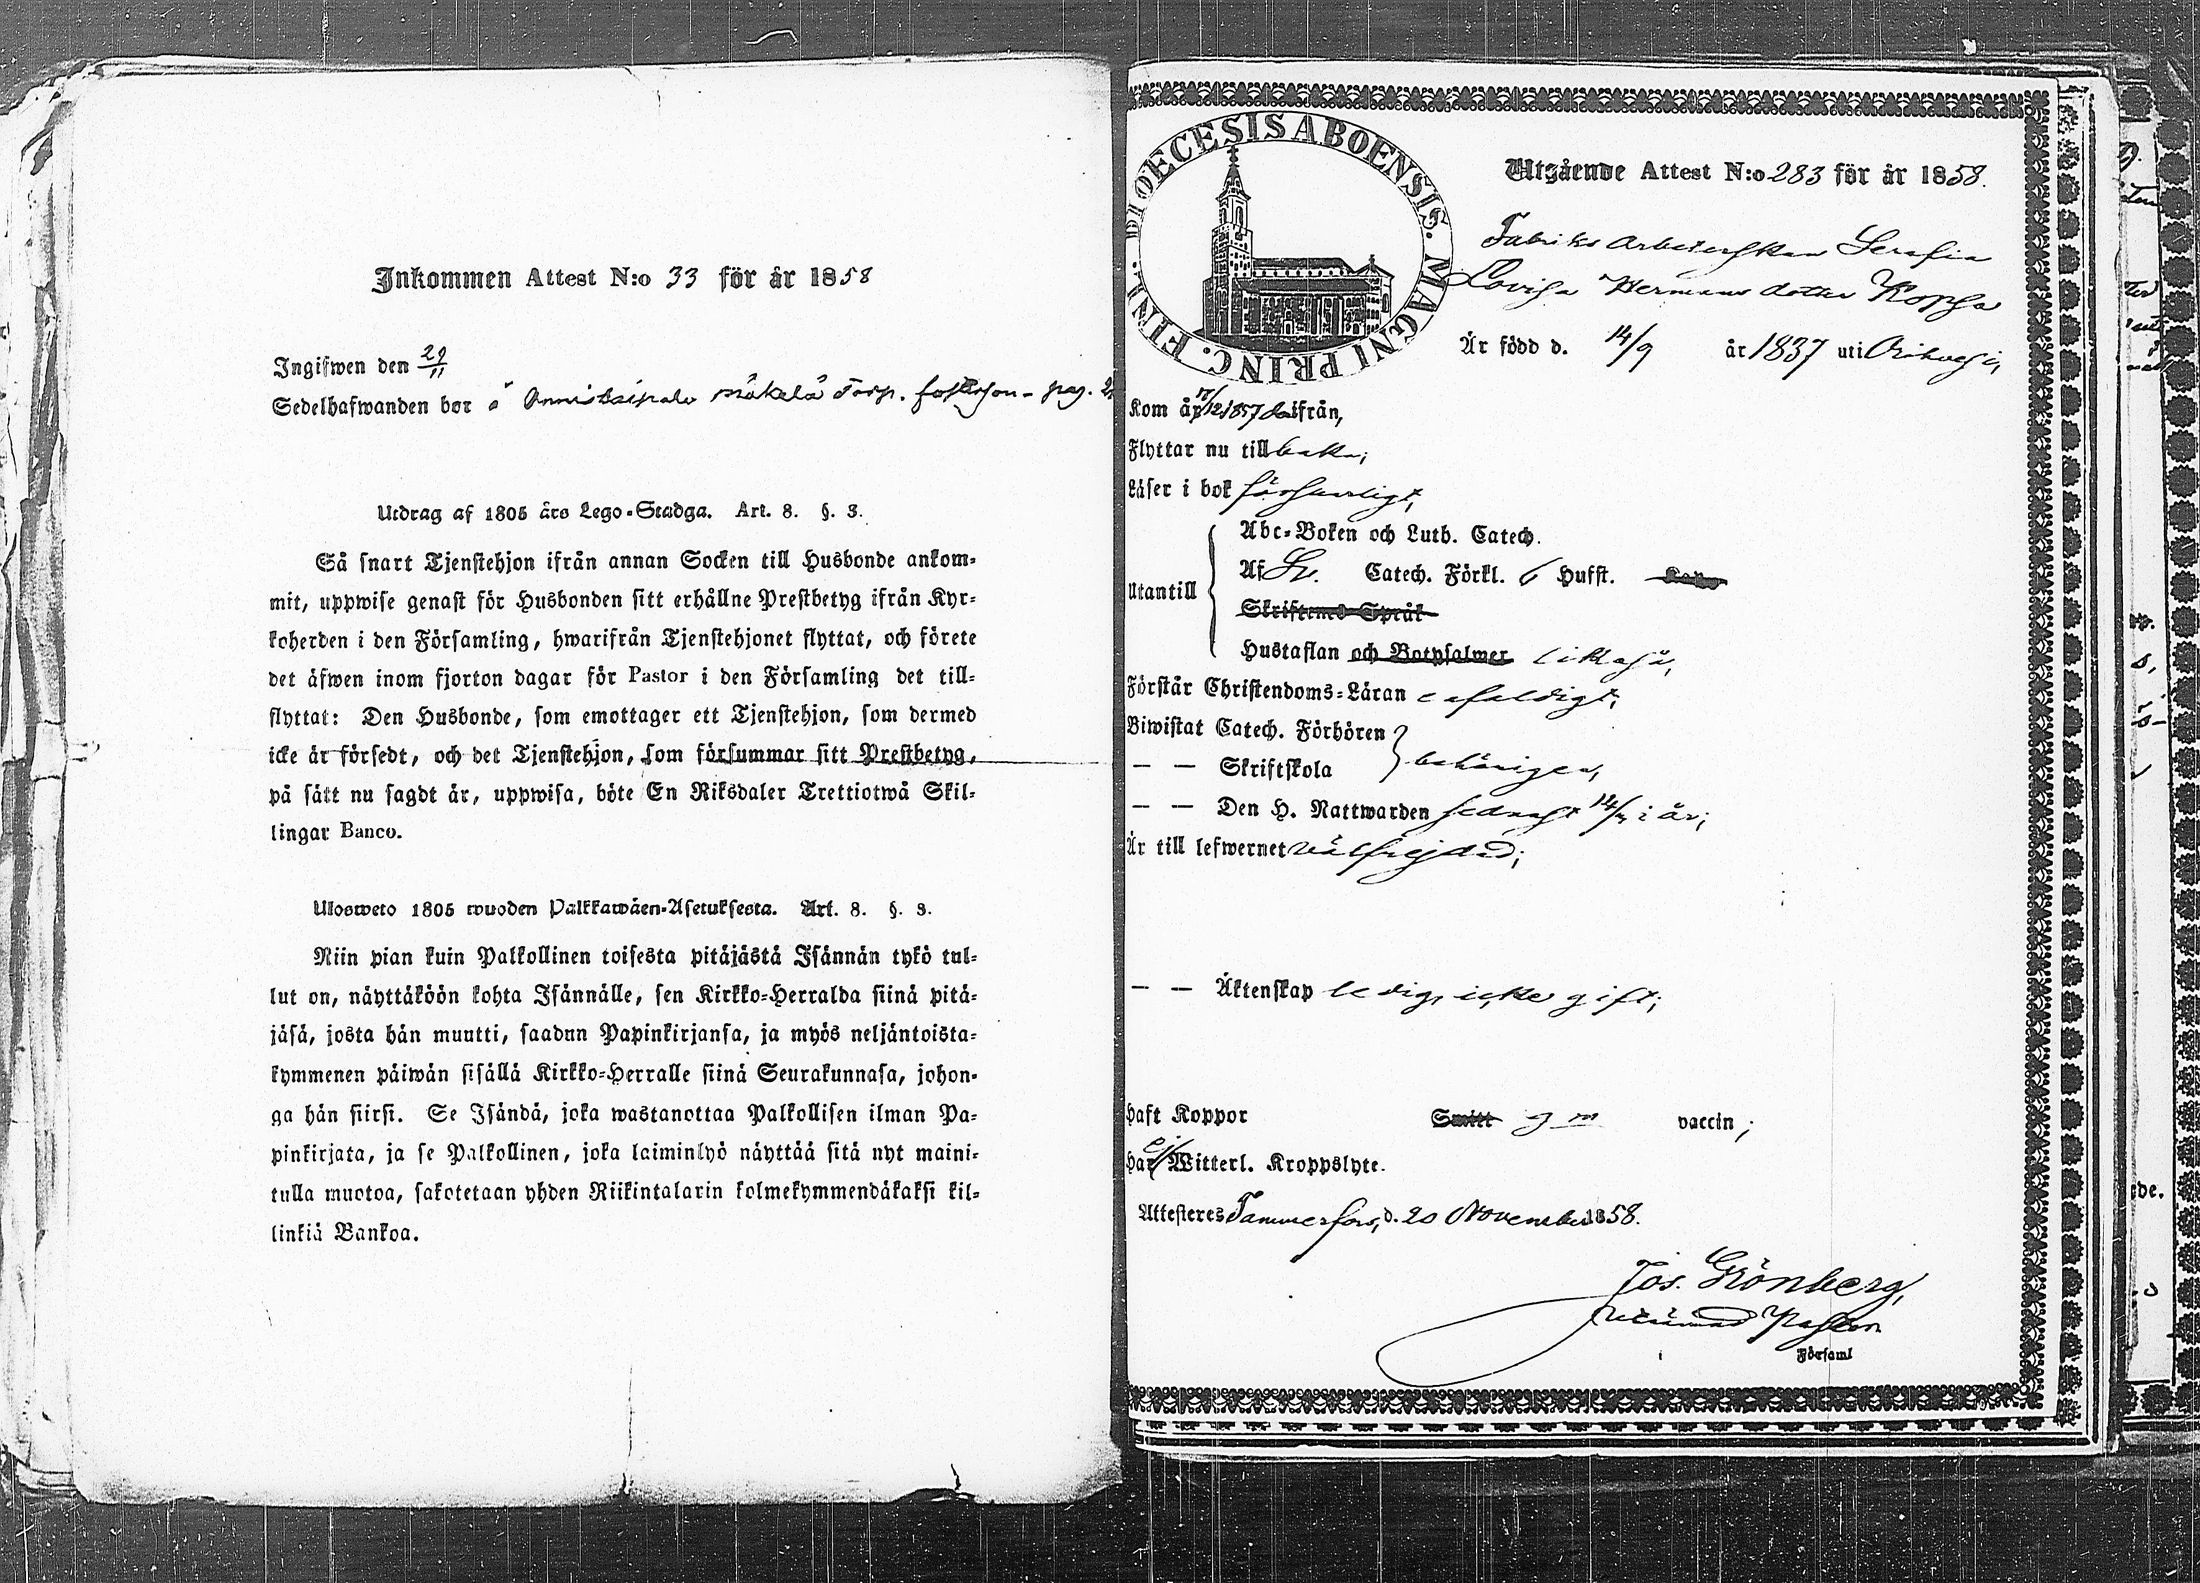 Inkommen Attest N:o 33 för år 1858
Ingifwen den 29/11
Sedelhafwanden bor å Onnistaipale Mäkelä Torp. pag.
Utdrag af 1805 års Lego-Stadga. Art. 8. §. 3.
Så snart Tjenstehjon ifrån annan Socken till Husbonde ankom-
mit, uppwise genast för Husbonden sitt erhållne Prestbetyg ifrån Kyr-
koherden i den Församling, hwarifrån Tjenstehjonet flyttat, och förete
det äfwen inom fjorton dagar för Pastor i den Församling det till-
flyttat: Den Husbonde, som emottager ett Tjenstehjon, som dermed
icke är försedt, och det Tjenstehjon, som försummar sitt Prestbetyg,
på sätt nu sagdt är, uppwisa, böte En Riksdaler Trettiotwå Skil-
lingar Banco.
Ulosweto 1805 wuoden Palkkawäen-Asetuksesta. Art. 8. §. 3.
Niin pian kuin Palkollinen toisesta pitäjästä Isännän tykö tul-
lut on, näyttäköön kohta Isännälle, sen Kirkko-Herralda siinä pitä-
jäsä, josta hän muutti, saadun Papinkirjansa, ja myös neljäntoista-
kymmenen päiwän sisällä Kirkko-Herralle siinä Seurakunnasa, johon-
ga hän siirsi. Se Isändä, joka wastanottaa Palkollisen ilman Pa-
pinkirjata, ja se Palkollinen, joka laiminlyö näyttää sitä nyt maini-
tulla muotoa, sakotetaan yhden Riikintalarin kolmekymmendäkaksi kil-
linkiä Bankoa.
DIOECESIS ABOENSIS. MAGNI PRINC. FINL.
Utgående Attest N:o 283 för år 1858.
Fabriks arbeterskan Serafia
Lovisa Hermans dotter Kopsa
Är född d. 14/9 år 1837 uti Orihvesi,
Kom år 17/12 1857 därifrån,
Flyttar nu tillbaka;
Läser i bok försvarligt,
Utantill
Abc-Boken och Luth. Catech.
Af Sv. Catech. Förkl. 6 Hufst.
Skriftenes Språk
Hustaflan och Botpsalmer likaså,
Förstår Christendoms-Läran enfaldigt;
Biwistat Catech. Förhören
— — Skriftskola behörigen,
— — Den H. Nattwarden sednast 14/ i år;
Är till lefwernet välfrejdad;
— — Äktenskap ledig, icke gift;
Haft Koppor Smitt gm vaccin;
Har ej Witterl. Kroppslyte.
Attesteres Tammerfors, d. 20 November 1858.
Jos. Grönberg,
Pastor
i Församl